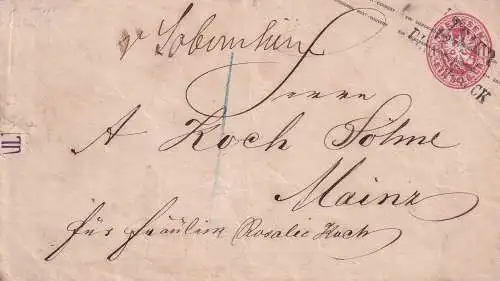 pr Sobernheim
Herrn
A Koch Söhne
Mainz
für Fräulein Rosalie Koch